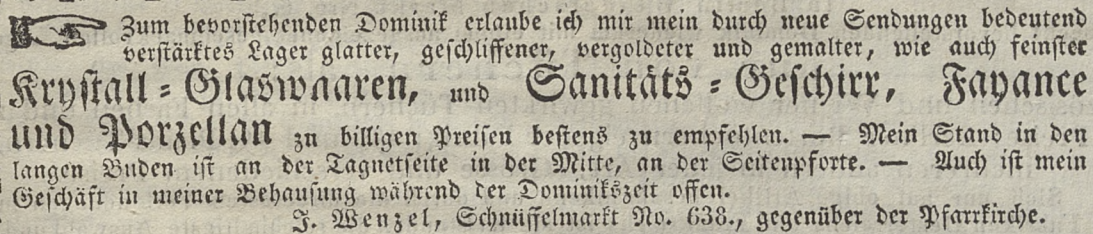 ☞ Zum bevorstehenden Dominik erlaube ich mir mein durch neue Sendungen bedeutend
verstärktes Lager glatter, geschliffener, vergoldeter und gemalter, wie auch feinster
Krystall-Glaswaaren, und Sanitäts-Geschirr, Fayance
und Porzellan zu billigen Preisen bestens zu empfehlen. — Mein Stand in den
langen Buden ist an der Tagnetseite in der Mitte, an der Seitenpforte. — Auch ist mein
Geschäft in meiner Behausung während der Dominikszeit offen.
J. Wenzel, Schnüffelmarkt No. 638., gegenüber der Pfarrkirche.